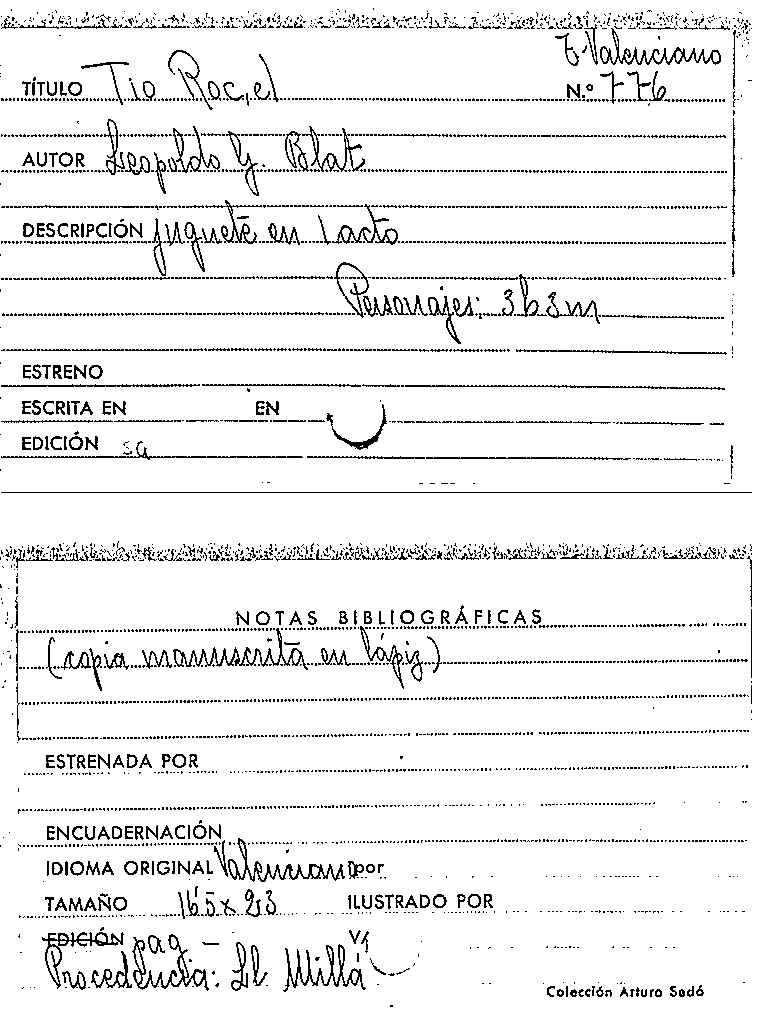 T. Valenciano
TÍTULO Tio Roc, el N.º 776
AUTOR Leopoldo G. Blat
DESCRIPCIÓN juguete en 1 acto
Personajes: 3h3m
ESTRENO
ESCRITA EN EN
EDICIÓN sa
NOTAS BIBLIOGRÁFICAS
(copia manuscrita en lápiz)
ESTRENADA POR
ENCUADERNACIÓN
IDIOMA ORIGINAL Valenciano por
TAMAÑO 16'5 x 23 ILUSTRADO POR
EDICIÓN pag —
Procedencia: Ll Millá
Colección Arturo Sedó